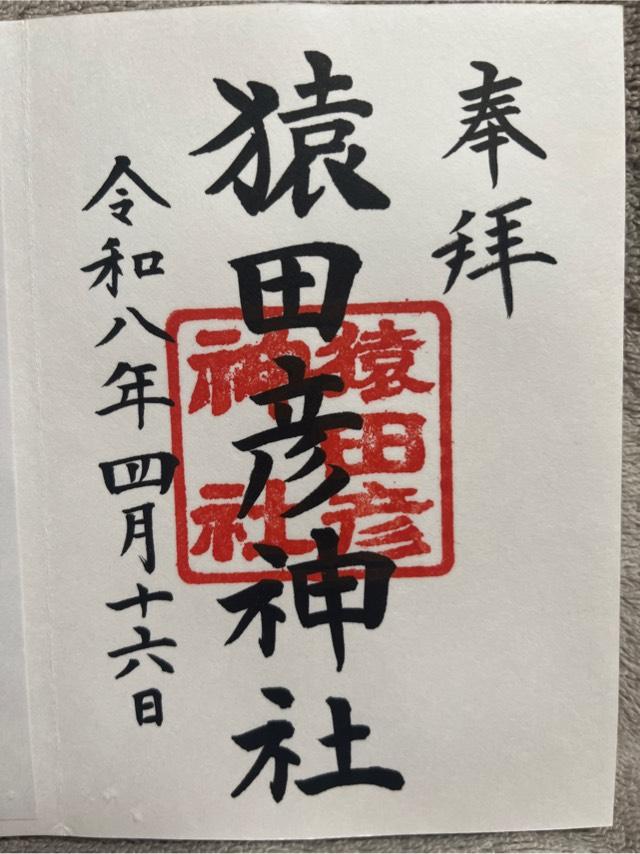 奉拝
猿田彦神社
猿田彦
神社
令和八年四月十六日